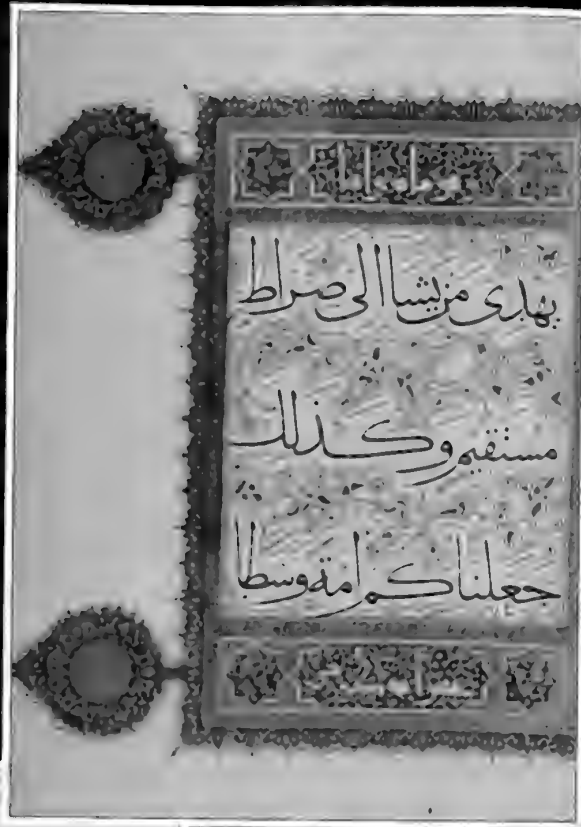 يهدى من يشا الى صراط
مستقيم وكذلك
جعلناكم امة وسطا